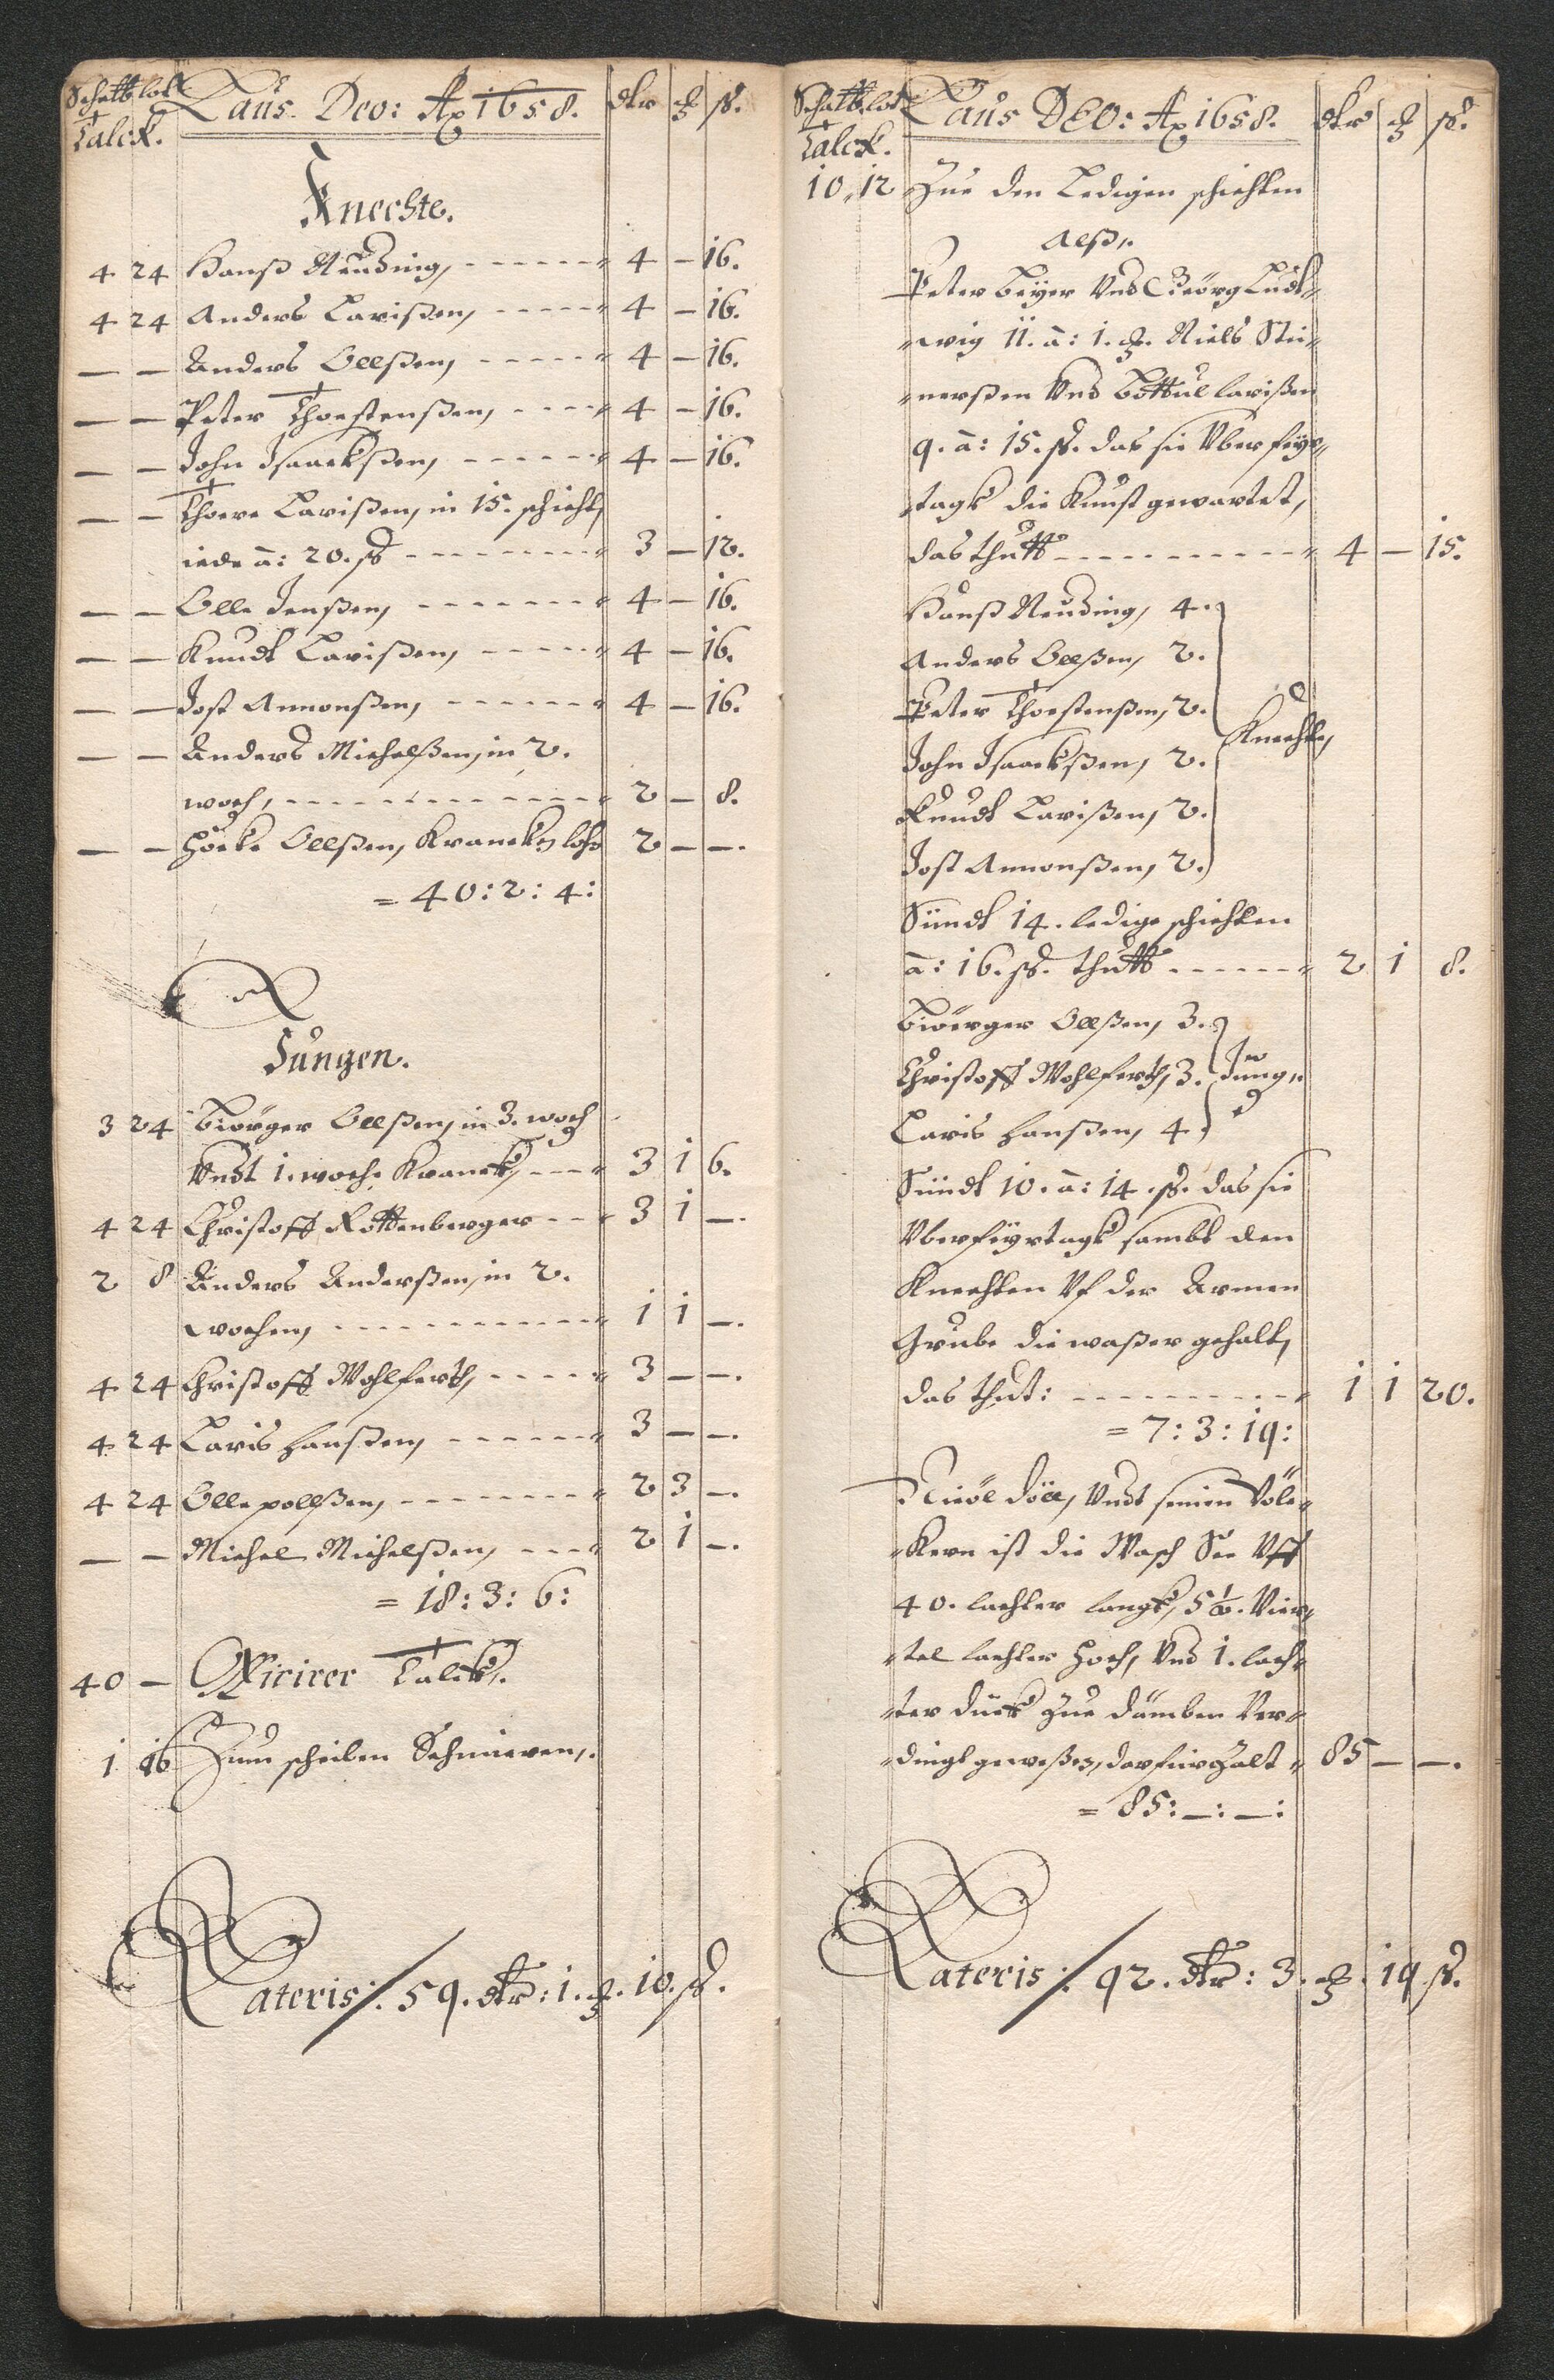 Schatt lot
Talck.
Laus Deo: Ao 1658.
dlr ℔ ß.
Knechte.
4 24 Hanß Neusing, 4 — 16.
4 24 Anders Larißen, 4 — 16.
— — Anders Olleßen, 4 — 16.
— — Peter Thorstensßen, 4 — 16.
— — John Isaackßen, 4 — 16.
— — Thore Larißen, in 15. schicht,
iede à: 20. ß 3 — 12.
— — Olle Jenßen, 4 — 16.
— — Knudt Larißen, 4 — 16.
— — Jost Amonßen, 4 — 16.
— — Anders Michelßen, in 2.
woch, 2 — 8.
— — Olleßen, Kranck lohn 2 — —.
= 40: 2: 4:
Jungen.
3 24 Biörger Olleßen, in 3. woch
Undt 1. woche Kranck, 3 1 6.
4 24 Christoff Rottenberger 3 1 —.
2 8 Anders Anderßen, in 2.
wochen, 1 1 —.
4 24 Christoff Wohlfarth, 3 — —.
4 24 Laris Hanßen, 3 — —.
4 24 Olle pollßen, 2 3 —.
— — Michel Michelßen, 2 1 —.
= 18: 3: 6:
40 — Officirer Talck.
1 16 Zum scheiben Schmieren.
Lateris: 59. dlr: 1. ℔. 10. ß.
Schatt lot
Talck.
Laus DEO: Ao 1658.
dlr ℔ ß.
10 12 Zue den Ledigen schichten
Alß.
Peter Beÿer Und Geörg Lud-
wig 11. à: 1. ℔. Niels Stei-
nerßen Und Bottul larißen
9. à: 15. ß. das sie Uber feÿr-
tagk die Kunst gewartet,
das thutt 4 — 15.
Hanß Neusing, 4.
Anders Olleßen, 2.
Peter Thorstensßen, 2.
Knechte,
John Isaackßen, 2.
Knudt Larißen, 2.
Jost Amonßen, 2.
Sündt 14. ledige schichten
à: 16. ß. thutt 2 1 8.
Biörger Olleßen, 3.
Christoff Wohlfarth, 3. Jung.
Laris Hanßen, 4.
Sündt 10. à: 14. ß. das sie
Uber feÿrtagk sambt den
Knechten Uf der Armen
Grube die waßer gehalt,
das thut: 1 1 20.
= 7: 3: 19:
Undt seinen Völ-
kern ist die Wasch See Uff
40. lachter langk, 5 1/2. Vier-
tel lachter hoch, Und 1. lach-
ter dick Zue dämben Ver-
dingt geweßen, darfür Zalt 85 — —.
= 85: —: —:
Lateris: 92. dlr: 3. ℔. 19 ß.